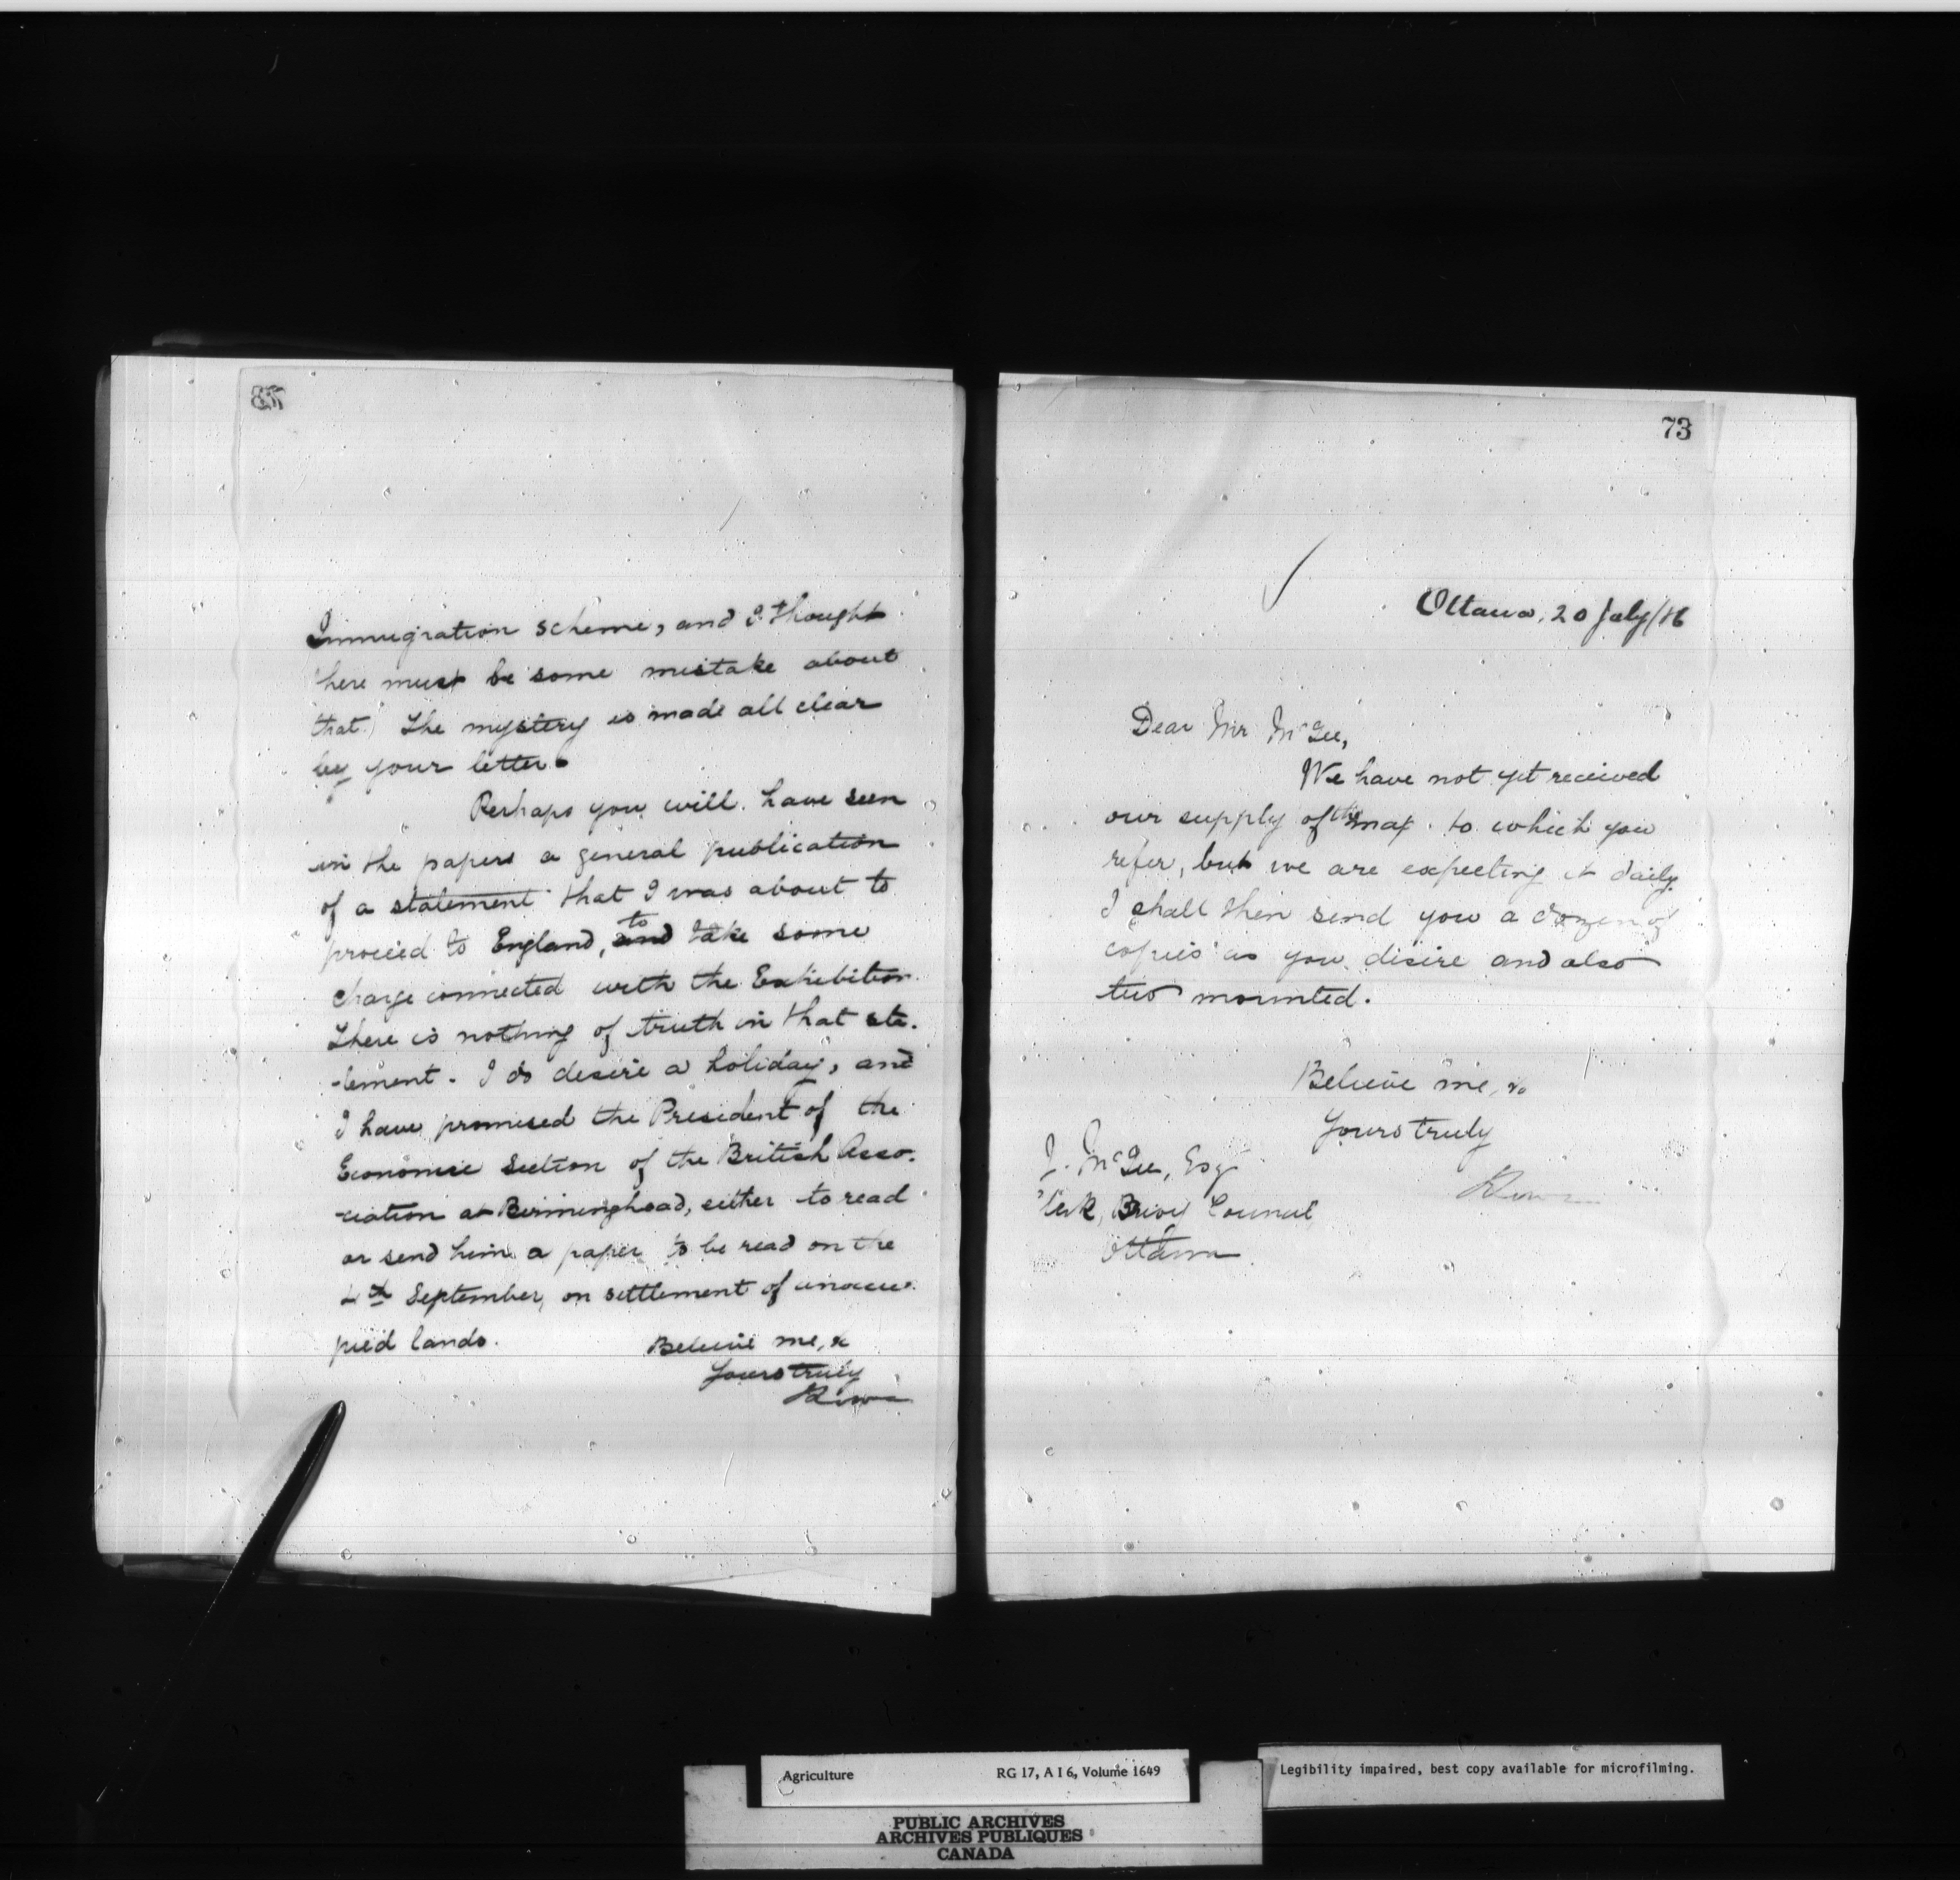 Immigration scheme, and I thought
there must be some mistake about
that.) The mystery is made all clear
by your letter.
Perhaps you will have seen
in the papers a general publication
of a statement that I was about to
proceed to England, and to take some
charge connected with the Exhibition.
There is nothing of truth in that sta-
-tement. I do desire a holiday, and
I have promised the President of the
Economic Section of the British Asso-
-ciation at Birminghoad, either to read
or send him a paper to be read on the
4th September, on settlement of unoccu-
pied lands.
Believe me, &
Yours truly
73
Ottawa, 20 July/86
Dear Mr McGee,
We have not yet received
our supply of the map to which you
refer, but we are expecting it daily.
I shall then send you a dozen of
copies as you desire and also
two mounted.
Believe me, &
Yours truly
J. McGee, Esq
Clerk, Privy Council,
Ottawa.
Agriculture
RG 17, A I 6, Volume 1649
Legibility impaired, best copy available for microfilming.
PUBLIC ARCHIVES
ARCHIVES PUBLIQUES
CANADA